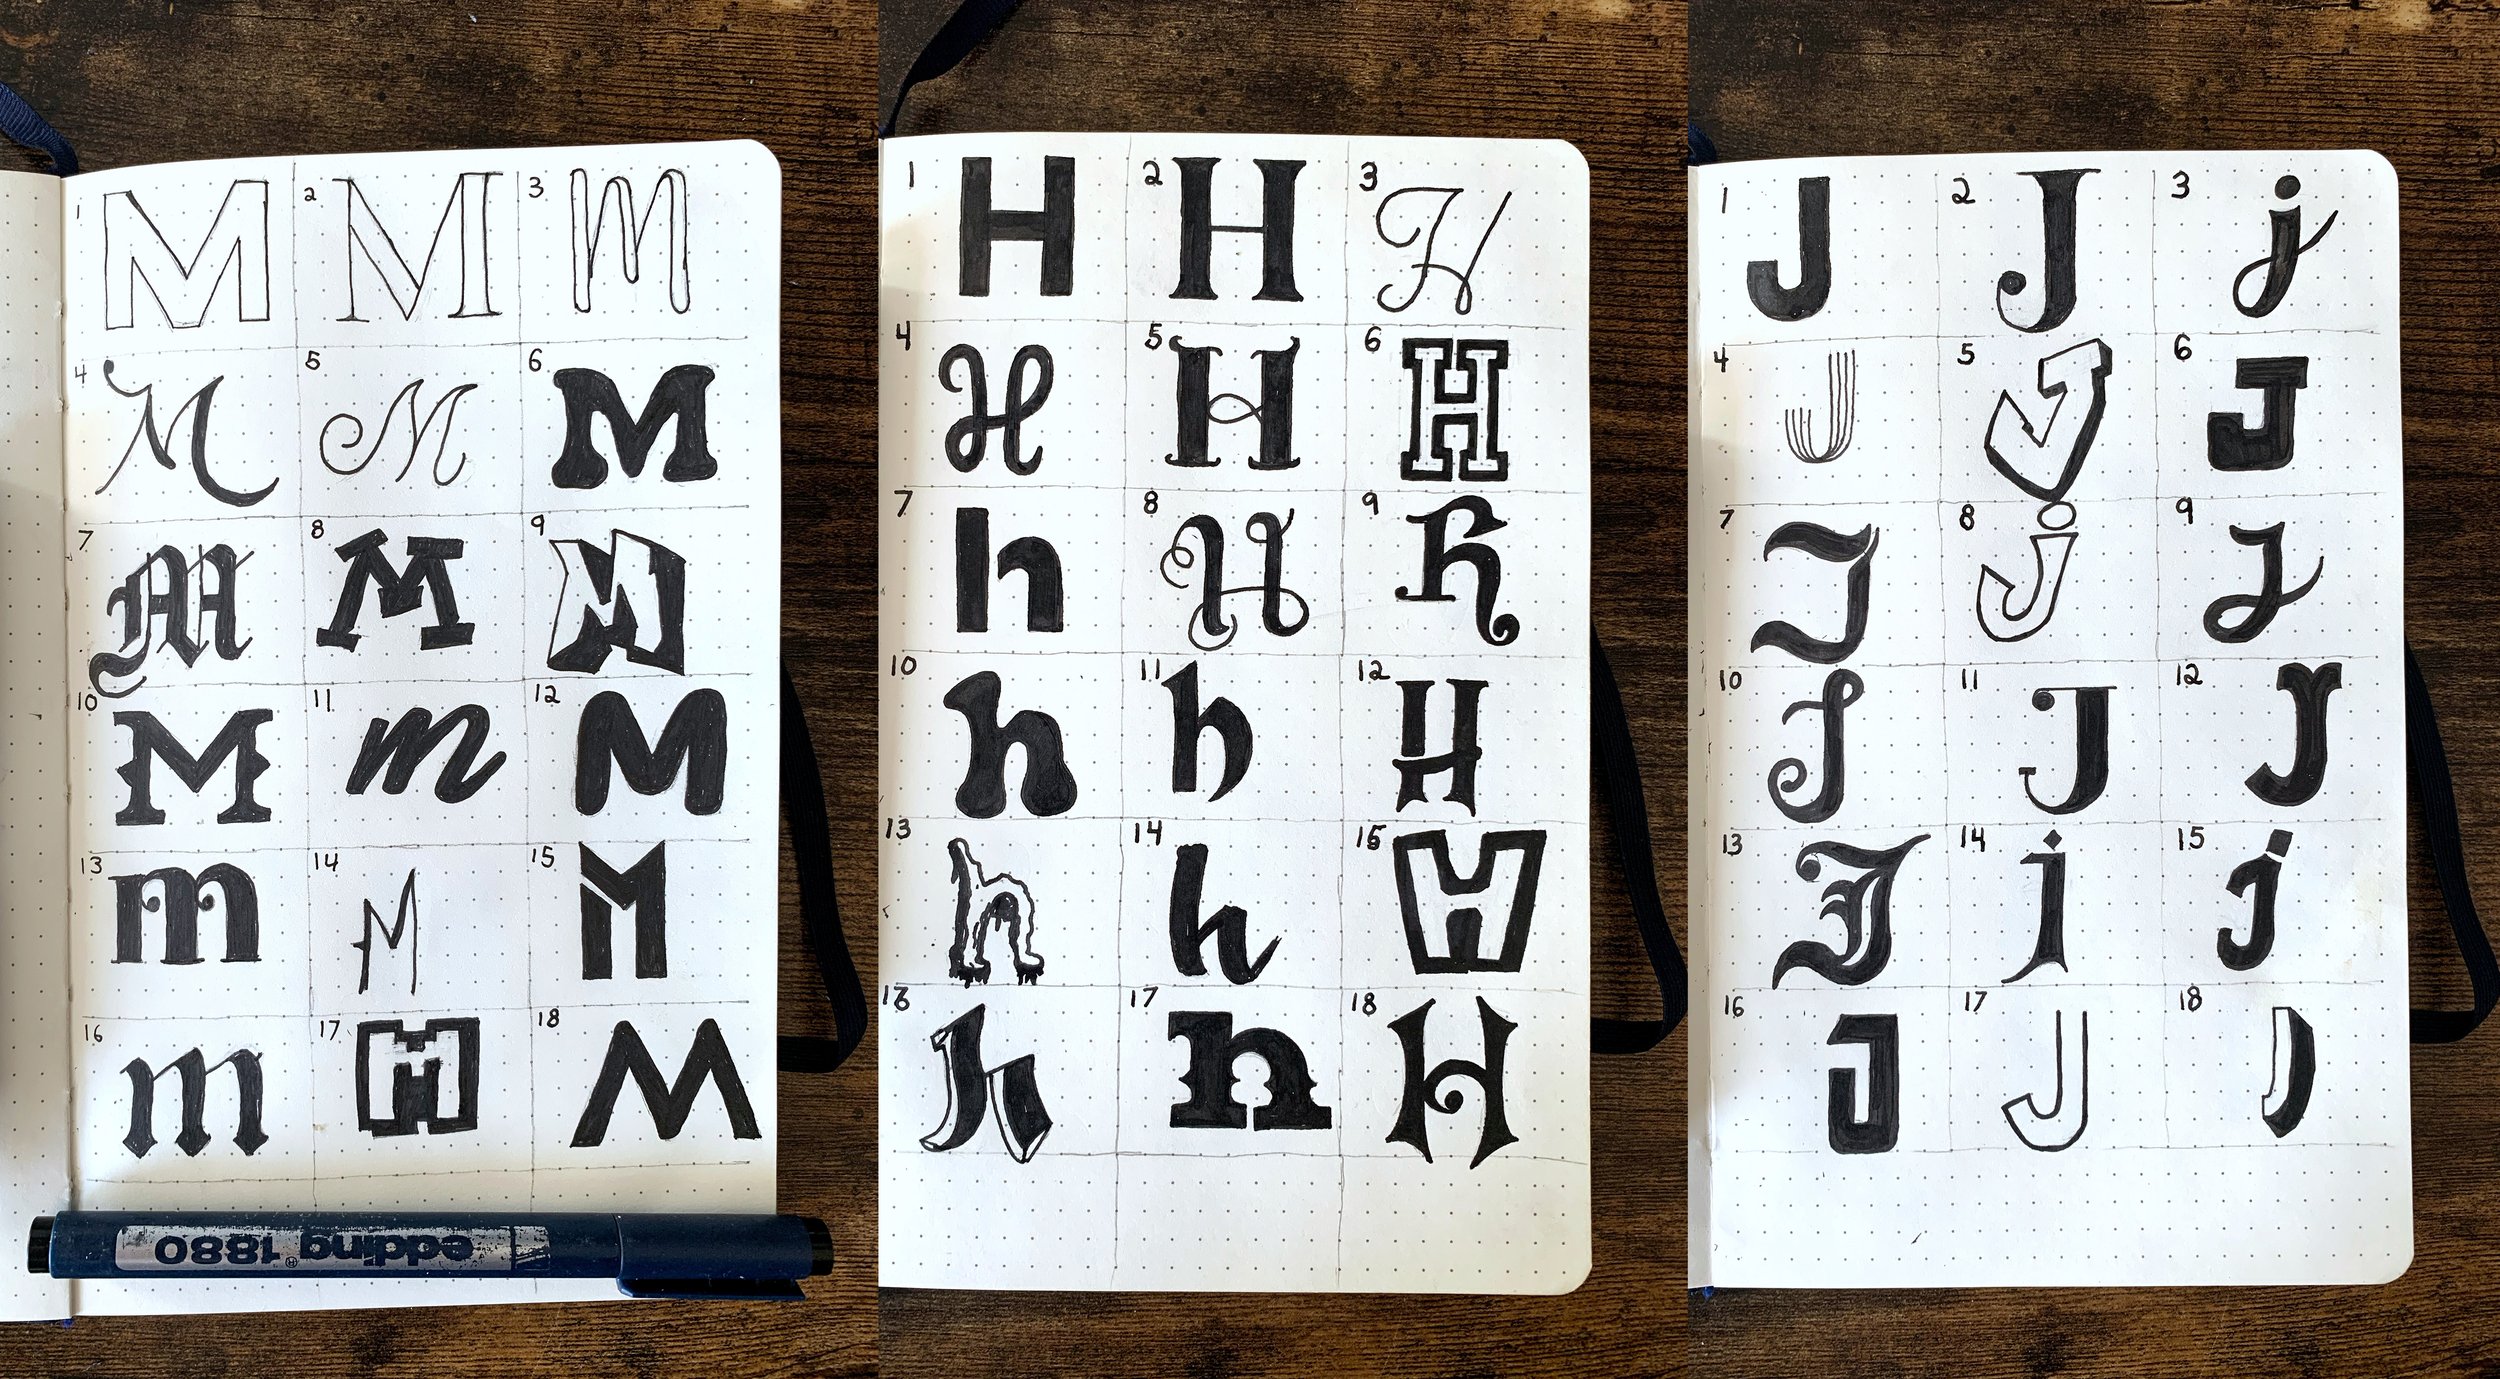 1 M 2 M 3 m
4 M 5 M 6 M
7 M 8 M 9 M
10 M 11 m 12 M
13 m 14 M 15 M
16 m 17 M 18 M
edding 1880
1 H 2 H 3 H
4 H 5 H 6 H
7 h 8 H 9 h
10 h 11 h 12 H
13 h 14 h 15 H
16 h 17 h 18 H
1 J 2 J 3 j
4 J 5 J 6 J
7 J 8 j 9 J
10 J 11 J 12 J
13 J 14 j 15 j
16 J 17 J 18 J